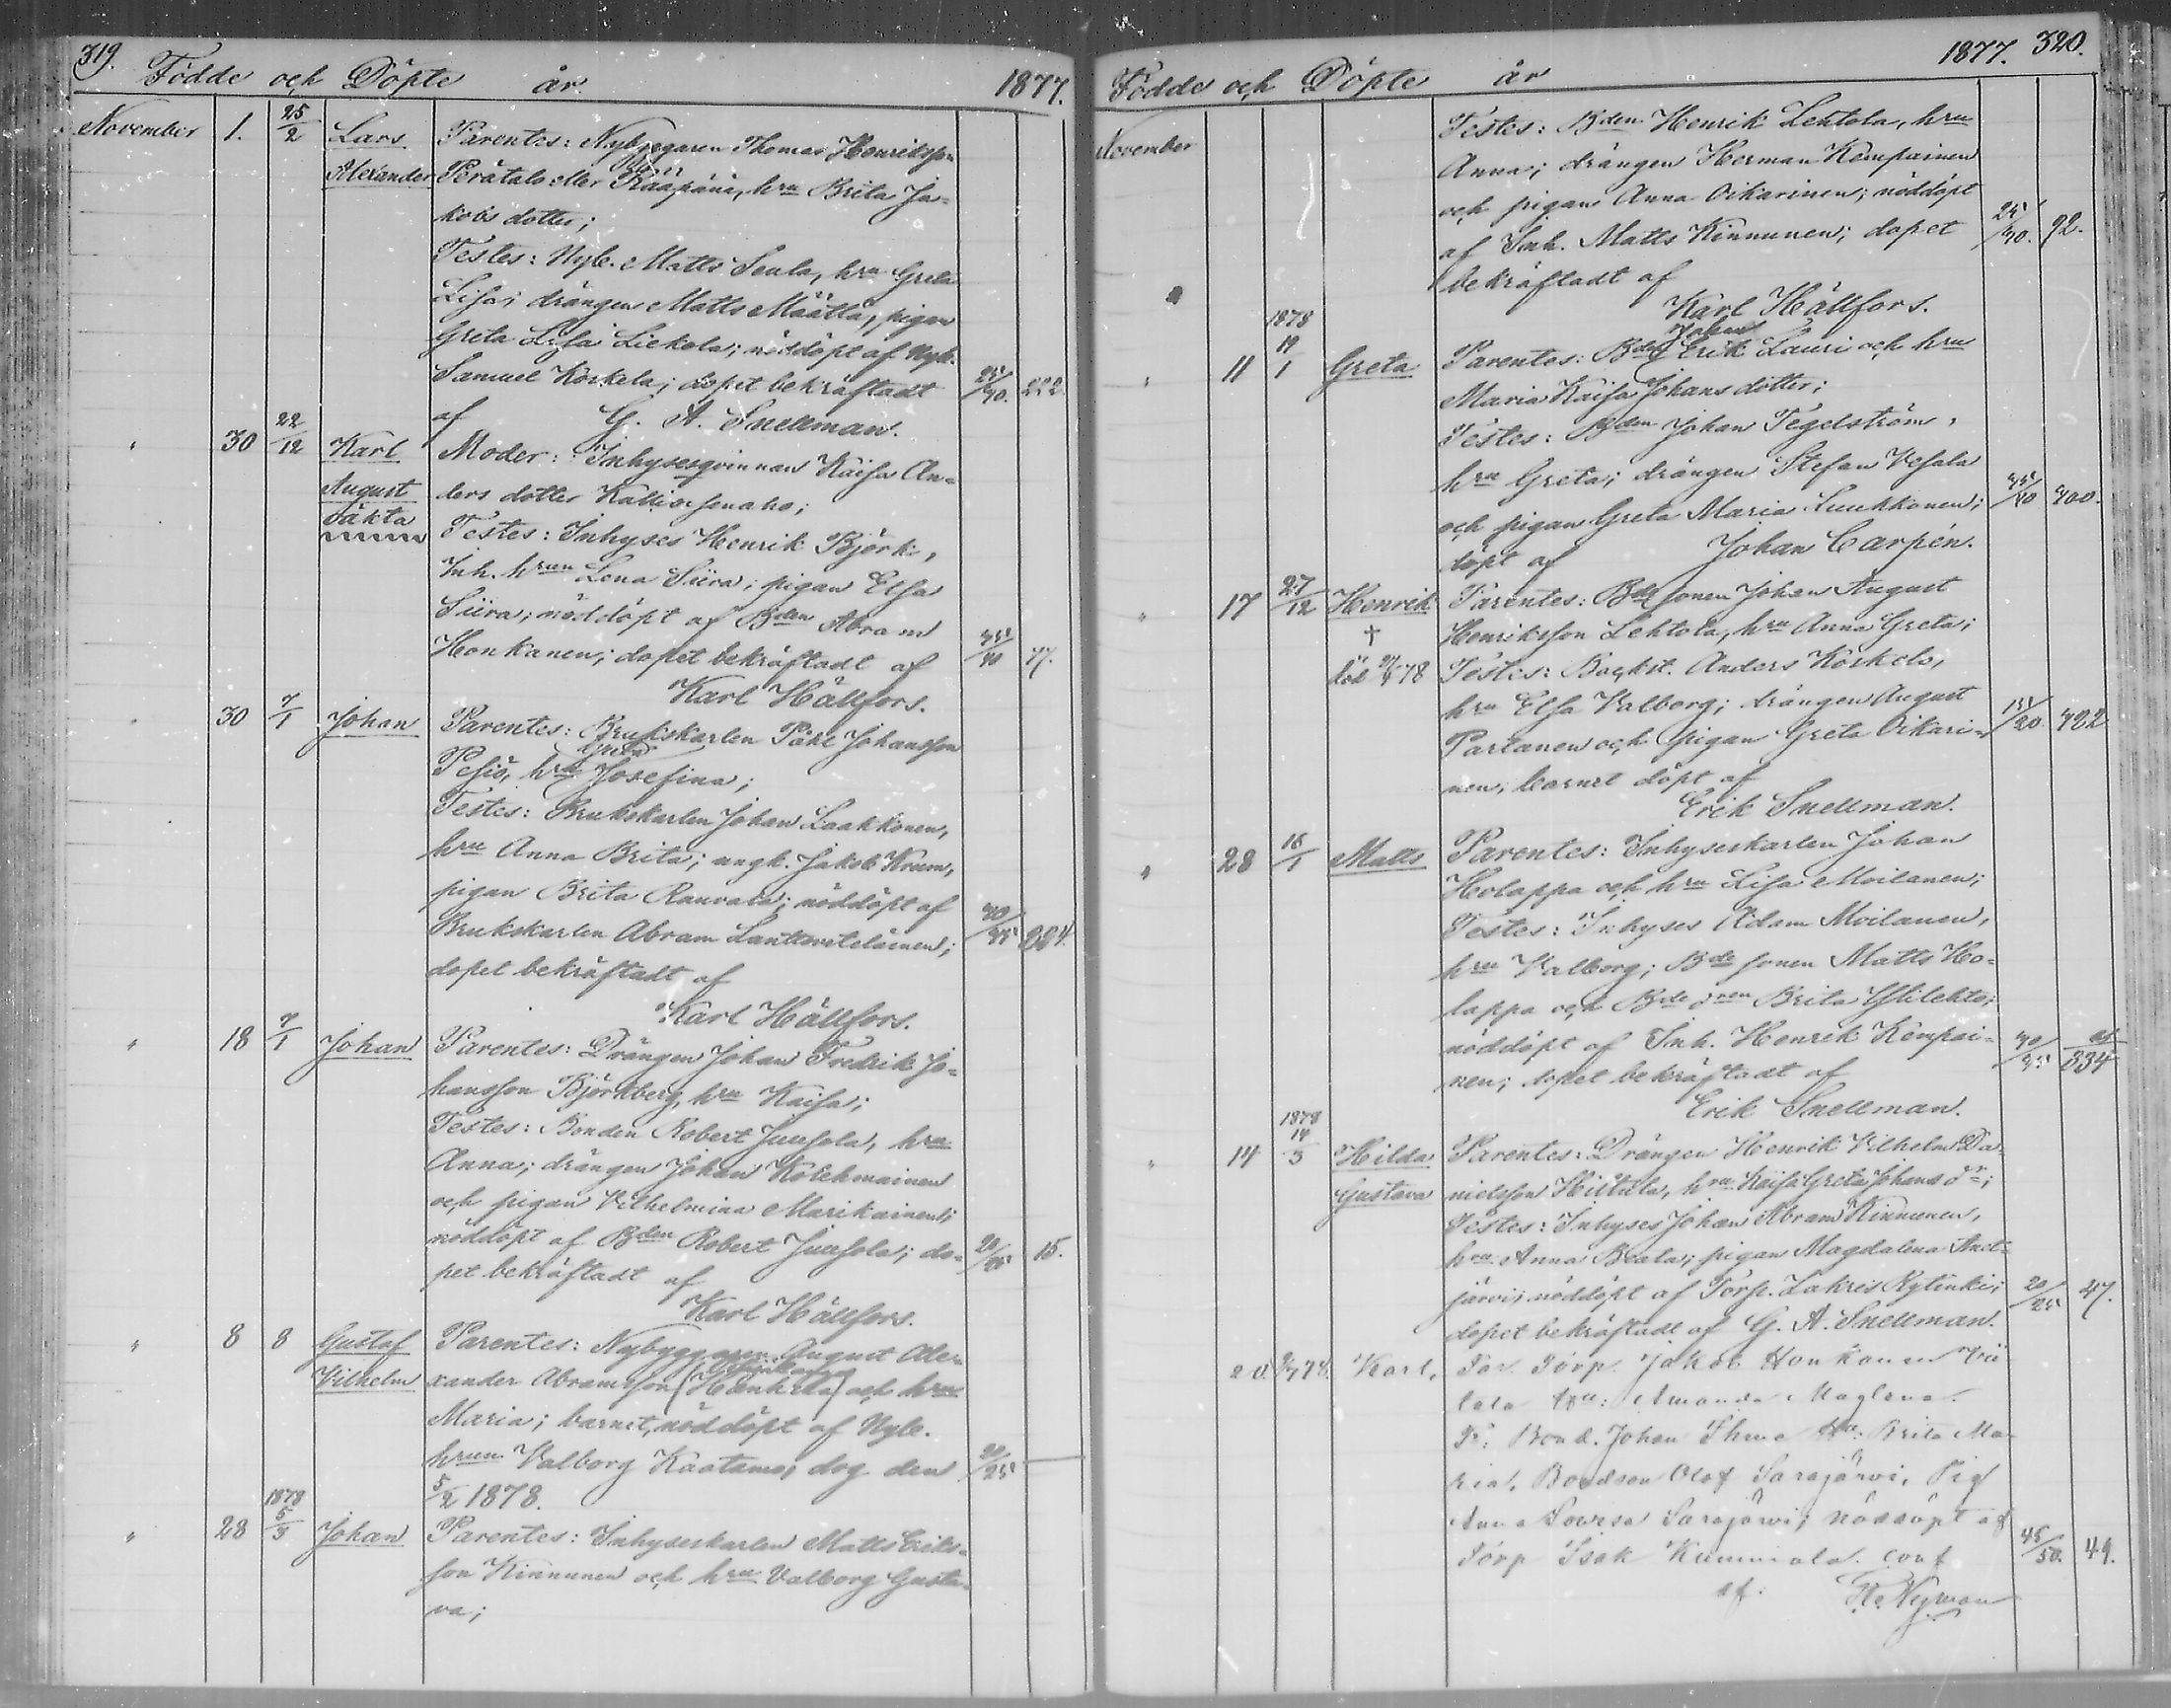 319.
Födde och Döpte år 1877.
November 1. 25/2 Lars Parentes: Nybyggaren Thomas Henriksson
Alexander Perätalo eller Rääpänä, hru Brita Ja-
kobs dotter;
Testes: Nyb. Matts Seula, hru Greta
Lisa; drängen Matts Määttä, pigan
Greta Lisa Liekola; nöddöpt af Nyb.
Samuel Korkela; dopet bekräftadt 222.
af G. A. Snellman.
" 30 22/12 Karl Moder: Inhysesqvinnan Kaisa An-
August ders dotter
oäkta Testes: Inhyses Henrik Björk,
Inh. hrun Lena Siira; pigan Elsa
Siira; nöddöpt af Bden Abram
Honkanen; dopet bekräftadt af 77.
Karl Hällfors.
30 7/1 Johan Parentes: Brukskarlen Påhl Johansson
Greta
Pesiö, hru Josefina;
Testes: Brukskarlen Johan Laakkonen,
hru Anna Brita; ungk. Jakob Krum,
pigan Brita Rauvala; nöddöpt af
Brukskarlen Abram 40/45
dopet bekräftadt af
Karl Hällfors.
" 18 7/1 Johan Parentes: Drängen Johan Fredrik Jo-
hansson Björkberg, hru Kaisa;
Testes: Bonden Robert Juusola, hru
Anna; drängen Johan Kolehmainen
och pigan Vilhelmina Marikainen;
nöddöpt af Bden Robert Juusola; do- 20/25 15.
pet bekräftadt af
Karl Hällfors.
" 8 8 Gustaf Parentes: Nybyggaren August Ale-
Vilhelm xander Abramsson (Hänkilä) och hru
Maria; barnet, nöddöpt af Nyb.
hrun Valborg Kaatamo, dog den 20/25
5/2 1878.
1878
" 28 5/3 Johan Parentes: Inhyseskarlen Matts Eriks-
son Kinnunen och hru Valborg Gusta-
va;
1877. 320.
Födde och Döpte år
November Testes: Bden Henrik Lehtola, hru
Anna; drängen Herman Kempainen
och pigan Anna Oikarinen; nöddöpt
af Inh. Matts Kinnunen; dopet 92.
bekräftadt af
Karl Hällfors.
1878
Johan
" 11 19/1 Greta Parentes: Bden Erik Lauri och hru
Maria Kaisa Johans dotter;
Testes: Bden Johan Tegelström,
hru Greta; drängen Stefan Vesala
och pigan Greta Maria Luukkonen; 400.
döpt af Johan Carpén.
" 17 27/12 Henrik Parentes: Bde sonen Johan August
† Henriksson Lehtola, hru Anna Greta;
död 78 Testes: Backst. Anders Korkelo,
hru Elsa Valborg; drängen August
Partanen och pigan Greta Oikari- 422
nen; barnet döpt af
Erik Snellman.
" 28 Matts Parentes: Inhyseskarlen Johan
Holappa och hru Lisa Moilanen;
Testes: Inhyses Adam Moilanen,
hru Valborg; Bde sonen Matts Ho-
lappa och Bde dren Brita Ylilehto;
nöddöpt af Inh. Henrik Kempai- 334
nen; dopet bekräftadt af
Erik Snellman.
1878
" 14 14/3 Hilda Parentes: Drängen Henrik Vilhelm Da-
Gustava nielsson Hiltula, hru Kaisa Greta Johans dr;
Testes: Inhyses Johan Abram Kinnunen,
hru Anna Beata; pigan Magdalena Aact-
järvi; nöddöpt af Torp. Zakris Rytinki; 20/25 47.
dopet bekräftadt af G. A. Snellman.
20. Karl, Far. Torp. Jakob Honkanen Vii-
lala hru: Amanda Maglena.
F: Bond. Johan hru: Brita Ma-
ria, Bondson Olof Sarajärvi, Pig
Anna Lovisa Sarajärvi; nöddöpt af
Torp Isak Kummala. conf 45/50. 49.
af. Nyman